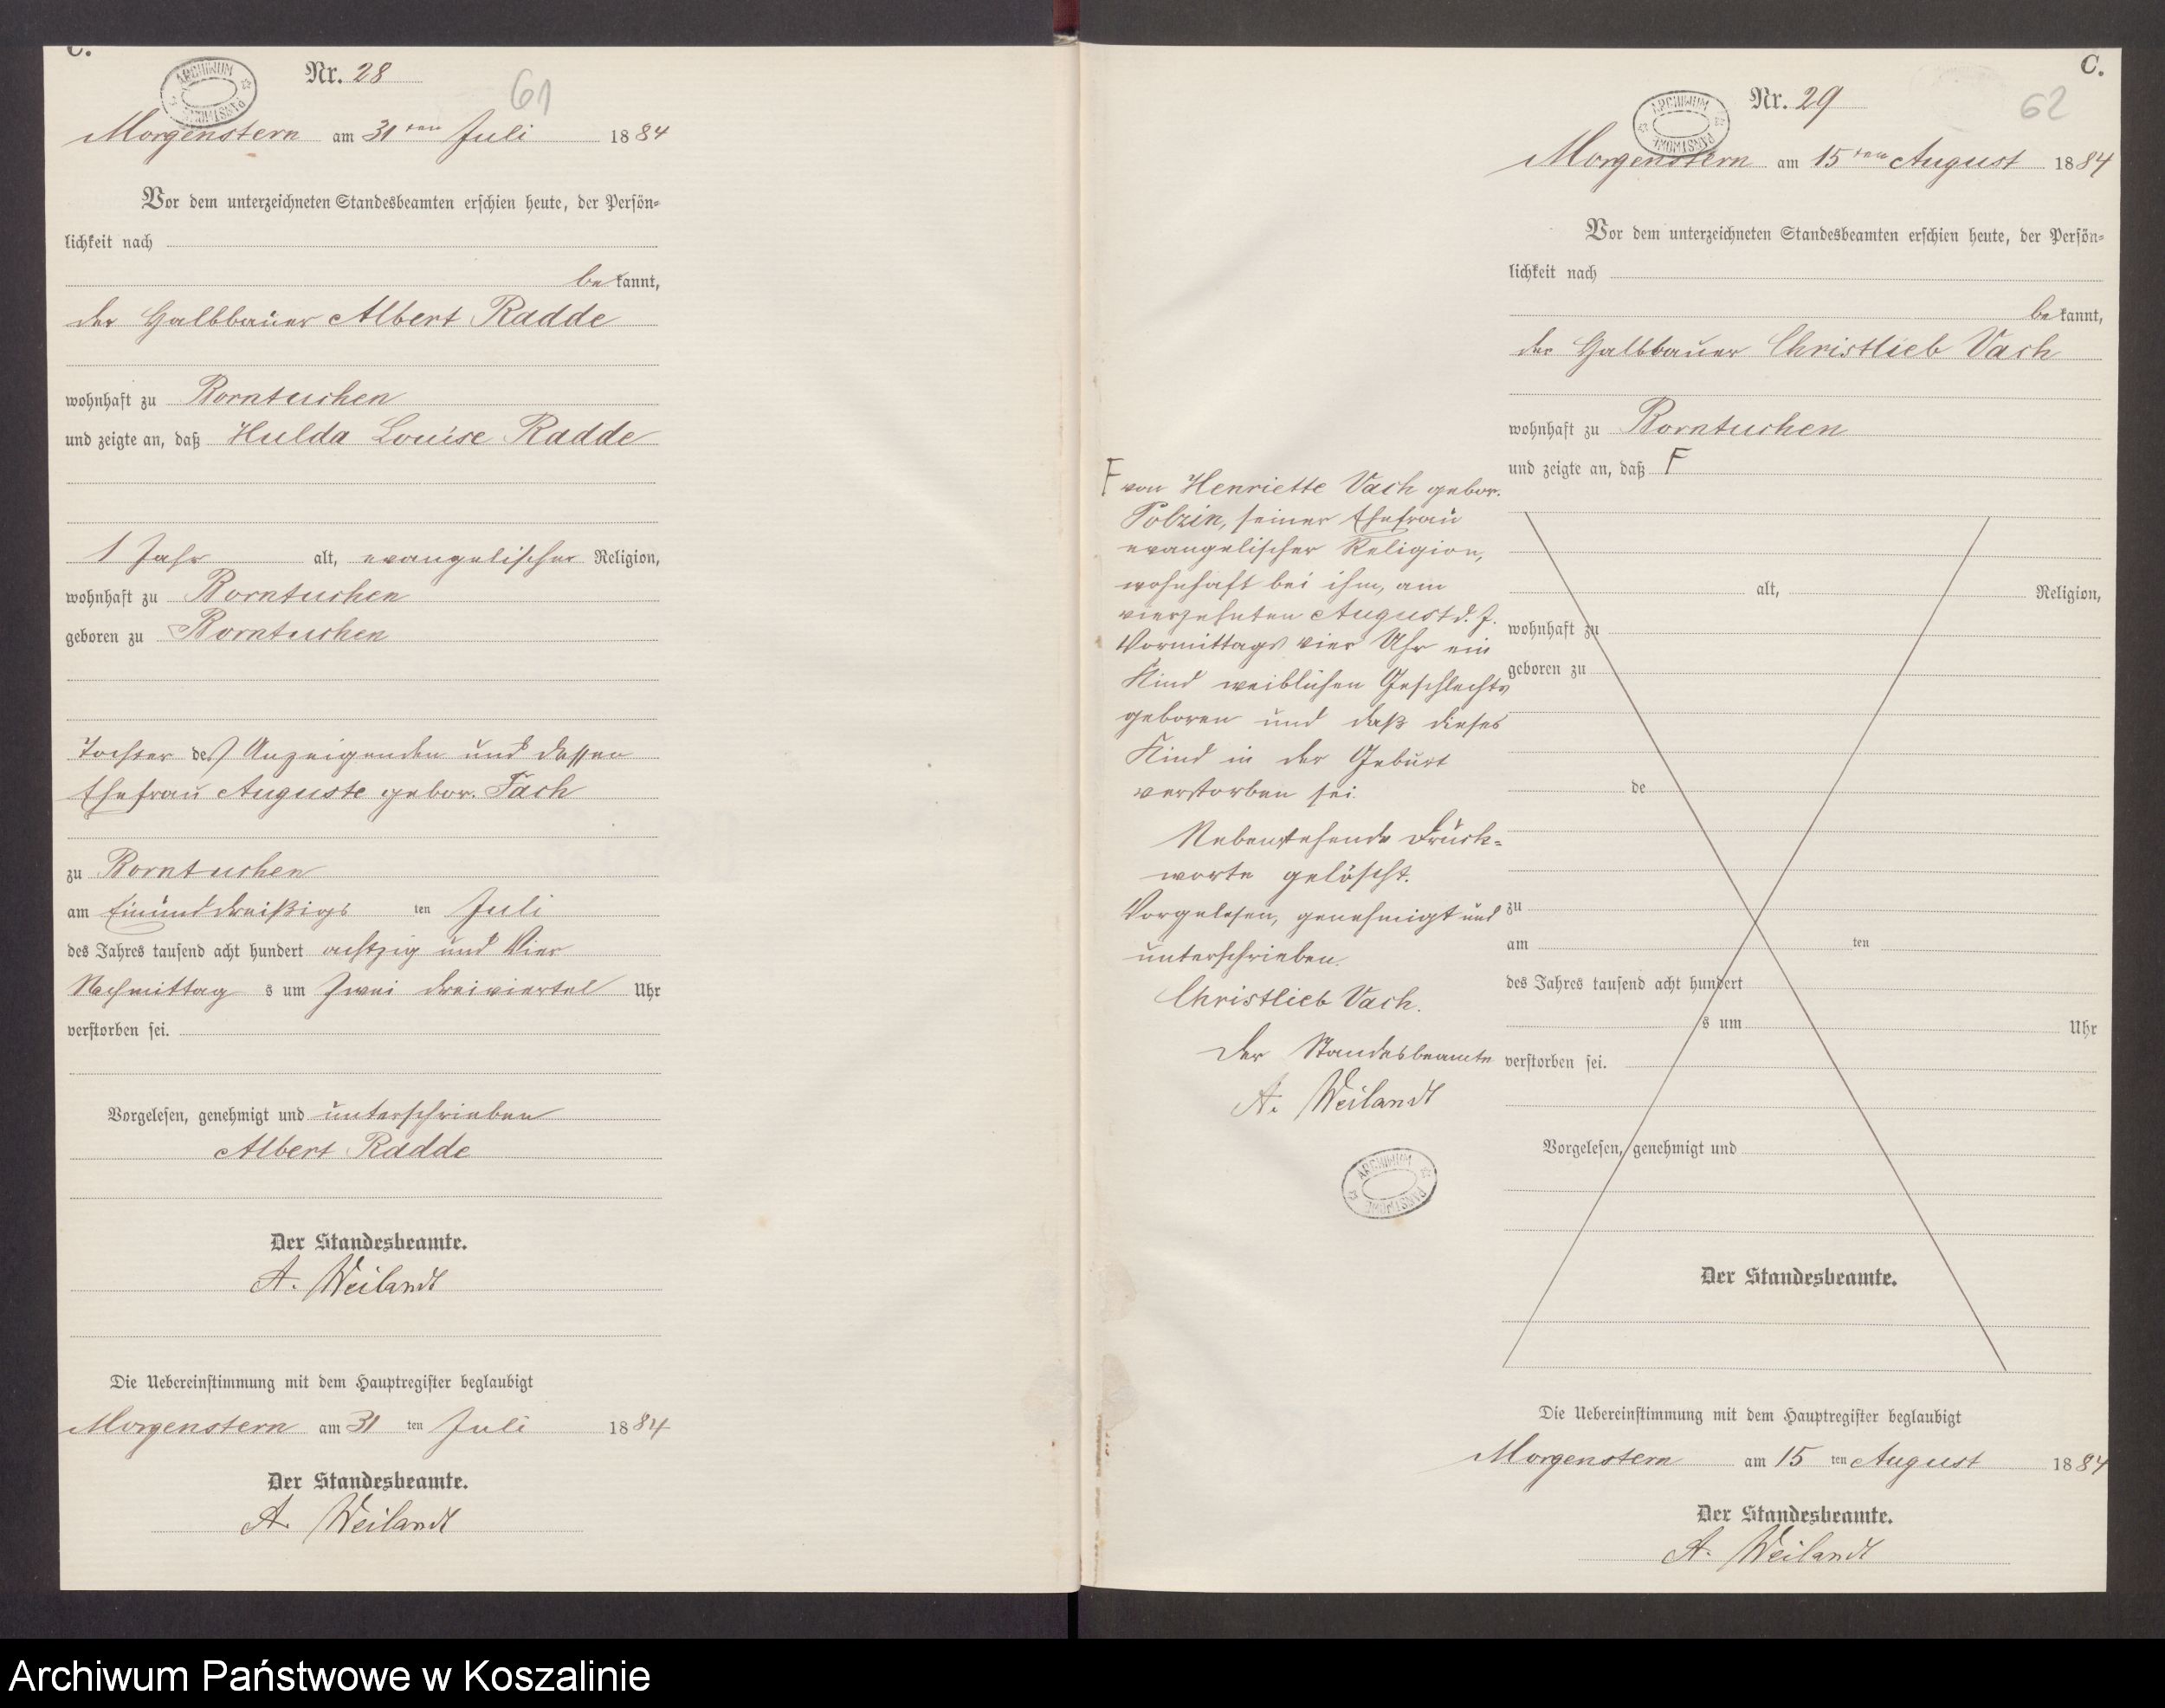 C.
Nr. 28
61
ARCHIWUM PAŃSTWOWE
Morgenstern am 31ten Juli 1884
Vor dem unterzeichneten Standesbeamten erschien heute, der Persön-
lichkeit nach
bekannt,
der Halbbauer Albert Radde
wohnhaft zu Borntuchen
und zeigte an, daß Hulda Louise Radde
1 Jahr alt, evangelischer Religion,
wohnhaft zu Borntuchen
geboren zu Borntuchen
Tochter des Anzeigenden und dessen
Ehefrau Auguste gebor.
zu Borntuchen
am Einunddreißigs ten Juli
des Jahres tausend acht hundert achtzig und Vier
Nachmittag s um Zwei dreiviertel Uhr
verstorben sei.
Vorgelesen, genehmigt und unterschrieben
Albert Radde
Der Standesbeamte.
A. Weilandt
Die Uebereinstimmung mit dem Hauptregister beglaubigt
Morgenstern am 31 ten Juli 1884
Der Standesbeamte.
A. Weilandt
C.
Nr. 29
62
ARCHIWUM PAŃSTWOWE
Morgenstern am 15ten August 1884
Vor dem unterzeichneten Standesbeamten erschien heute, der Persön-
lichkeit nach
bekannt,
der Halbbauer Christlieb Vach
wohnhaft zu Borntuchen
und zeigte an, daß F
F von Henriette Vach gebor.
Polzin, seiner Ehefrau
evangelischer Religion,
wohnhaft bei ihm, am
vierzehnten August d. J.
Vormittags vier Uhr ein
Kind weiblichen Geschlechts
geboren und daß dieses
Kind in der Geburt
verstorben sei.
Nebenstehende Druck-
worte gelöscht.
Vorgelesen, genehmigt und
unterschrieben.
Christlieb Vach.
Der Standesbeamte
A. Weilandt
ARCHIWUM PAŃSTWOWE
alt, Religion,
wohnhaft zu
geboren zu
de
zu
am ten
des Jahres tausend acht hundert
s um Uhr
verstorben sei.
Vorgelesen, genehmigt und
Der Standesbeamte.
Die Uebereinstimmung mit dem Hauptregister beglaubigt
Morgenstern am 15 ten August 1884
Der Standesbeamte.
A. Weilandt
Archiwum Państwowe w Koszalinie